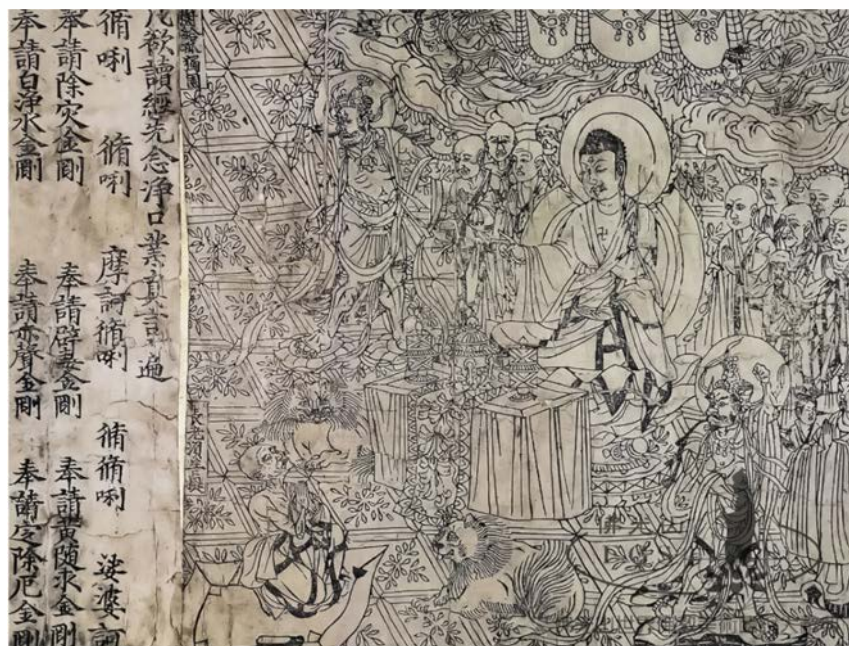 給孤獨園
長老須菩提
凡欲讀經先念淨口業真言一遍
脩唎 脩唎 摩訶脩唎 脩脩唎 娑婆訶
奉請除灾金剛 奉請辟毒金剛 奉請黃隨求金剛
奉請白淨水金剛 奉請赤聲金剛 奉請定除厄金剛